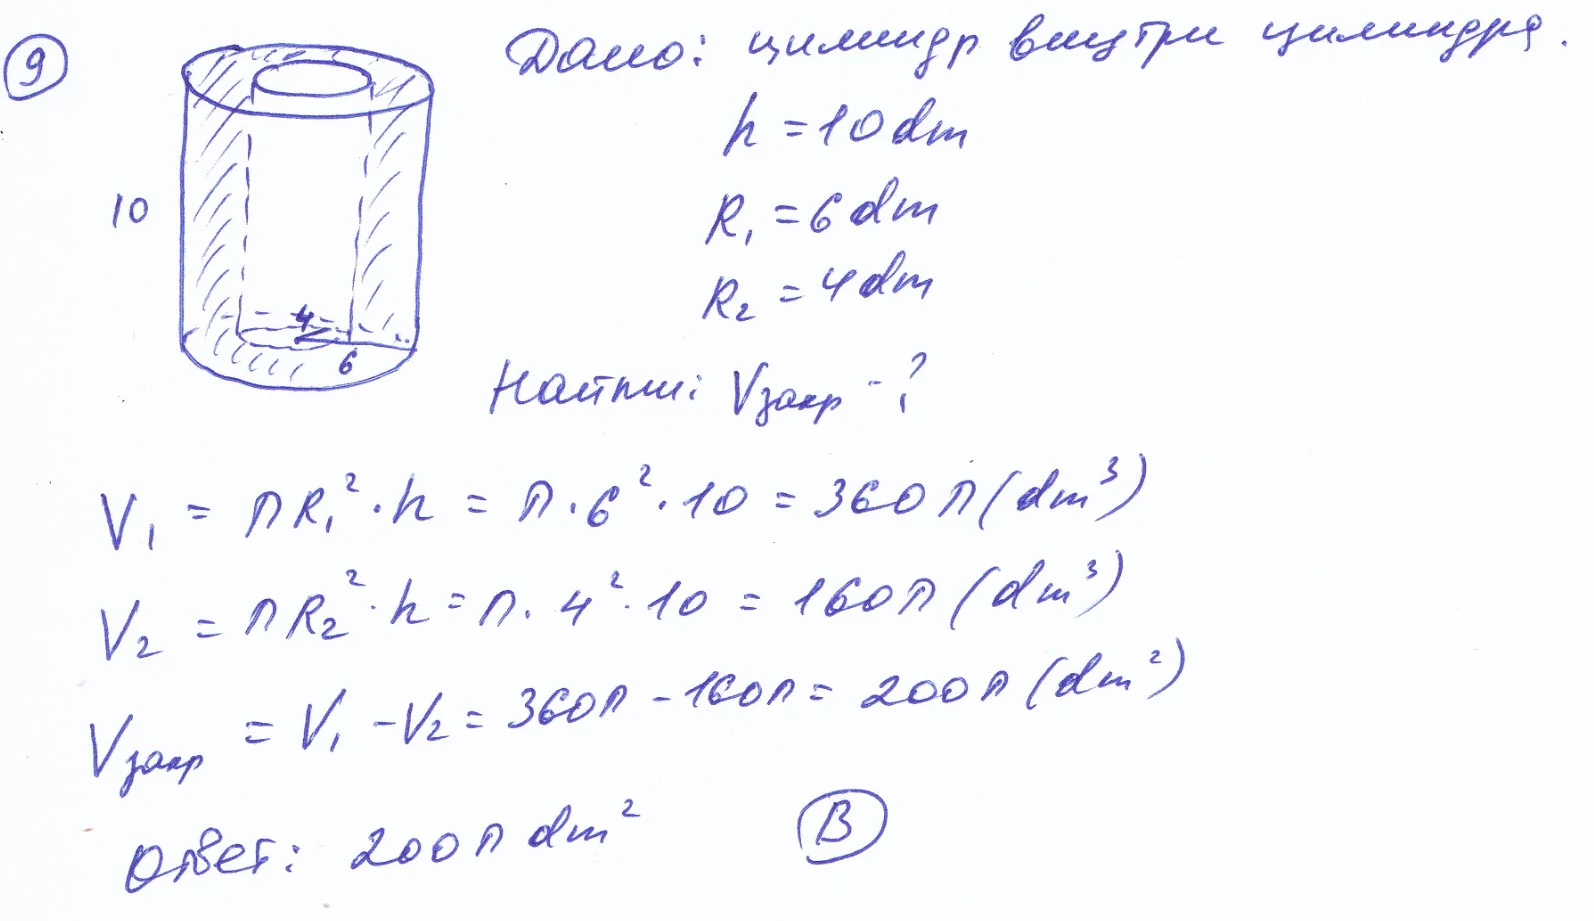 9
Дано: цилиндр внутри цилиндра.
h = 10 dm
10
R₁ = 6 dm
R₂ = 4 dm
4
6
Найти: Vзакр - ?
V₁ = πR₁² · h = π · 6² · 10 = 360π (dm³)
V₂ = πR₂² · h = π · 4² · 10 = 160π (dm³)
Vзакр = V₁ - V₂ = 360π - 160π = 200π (dm²)
Ответ: 200π dm²
B